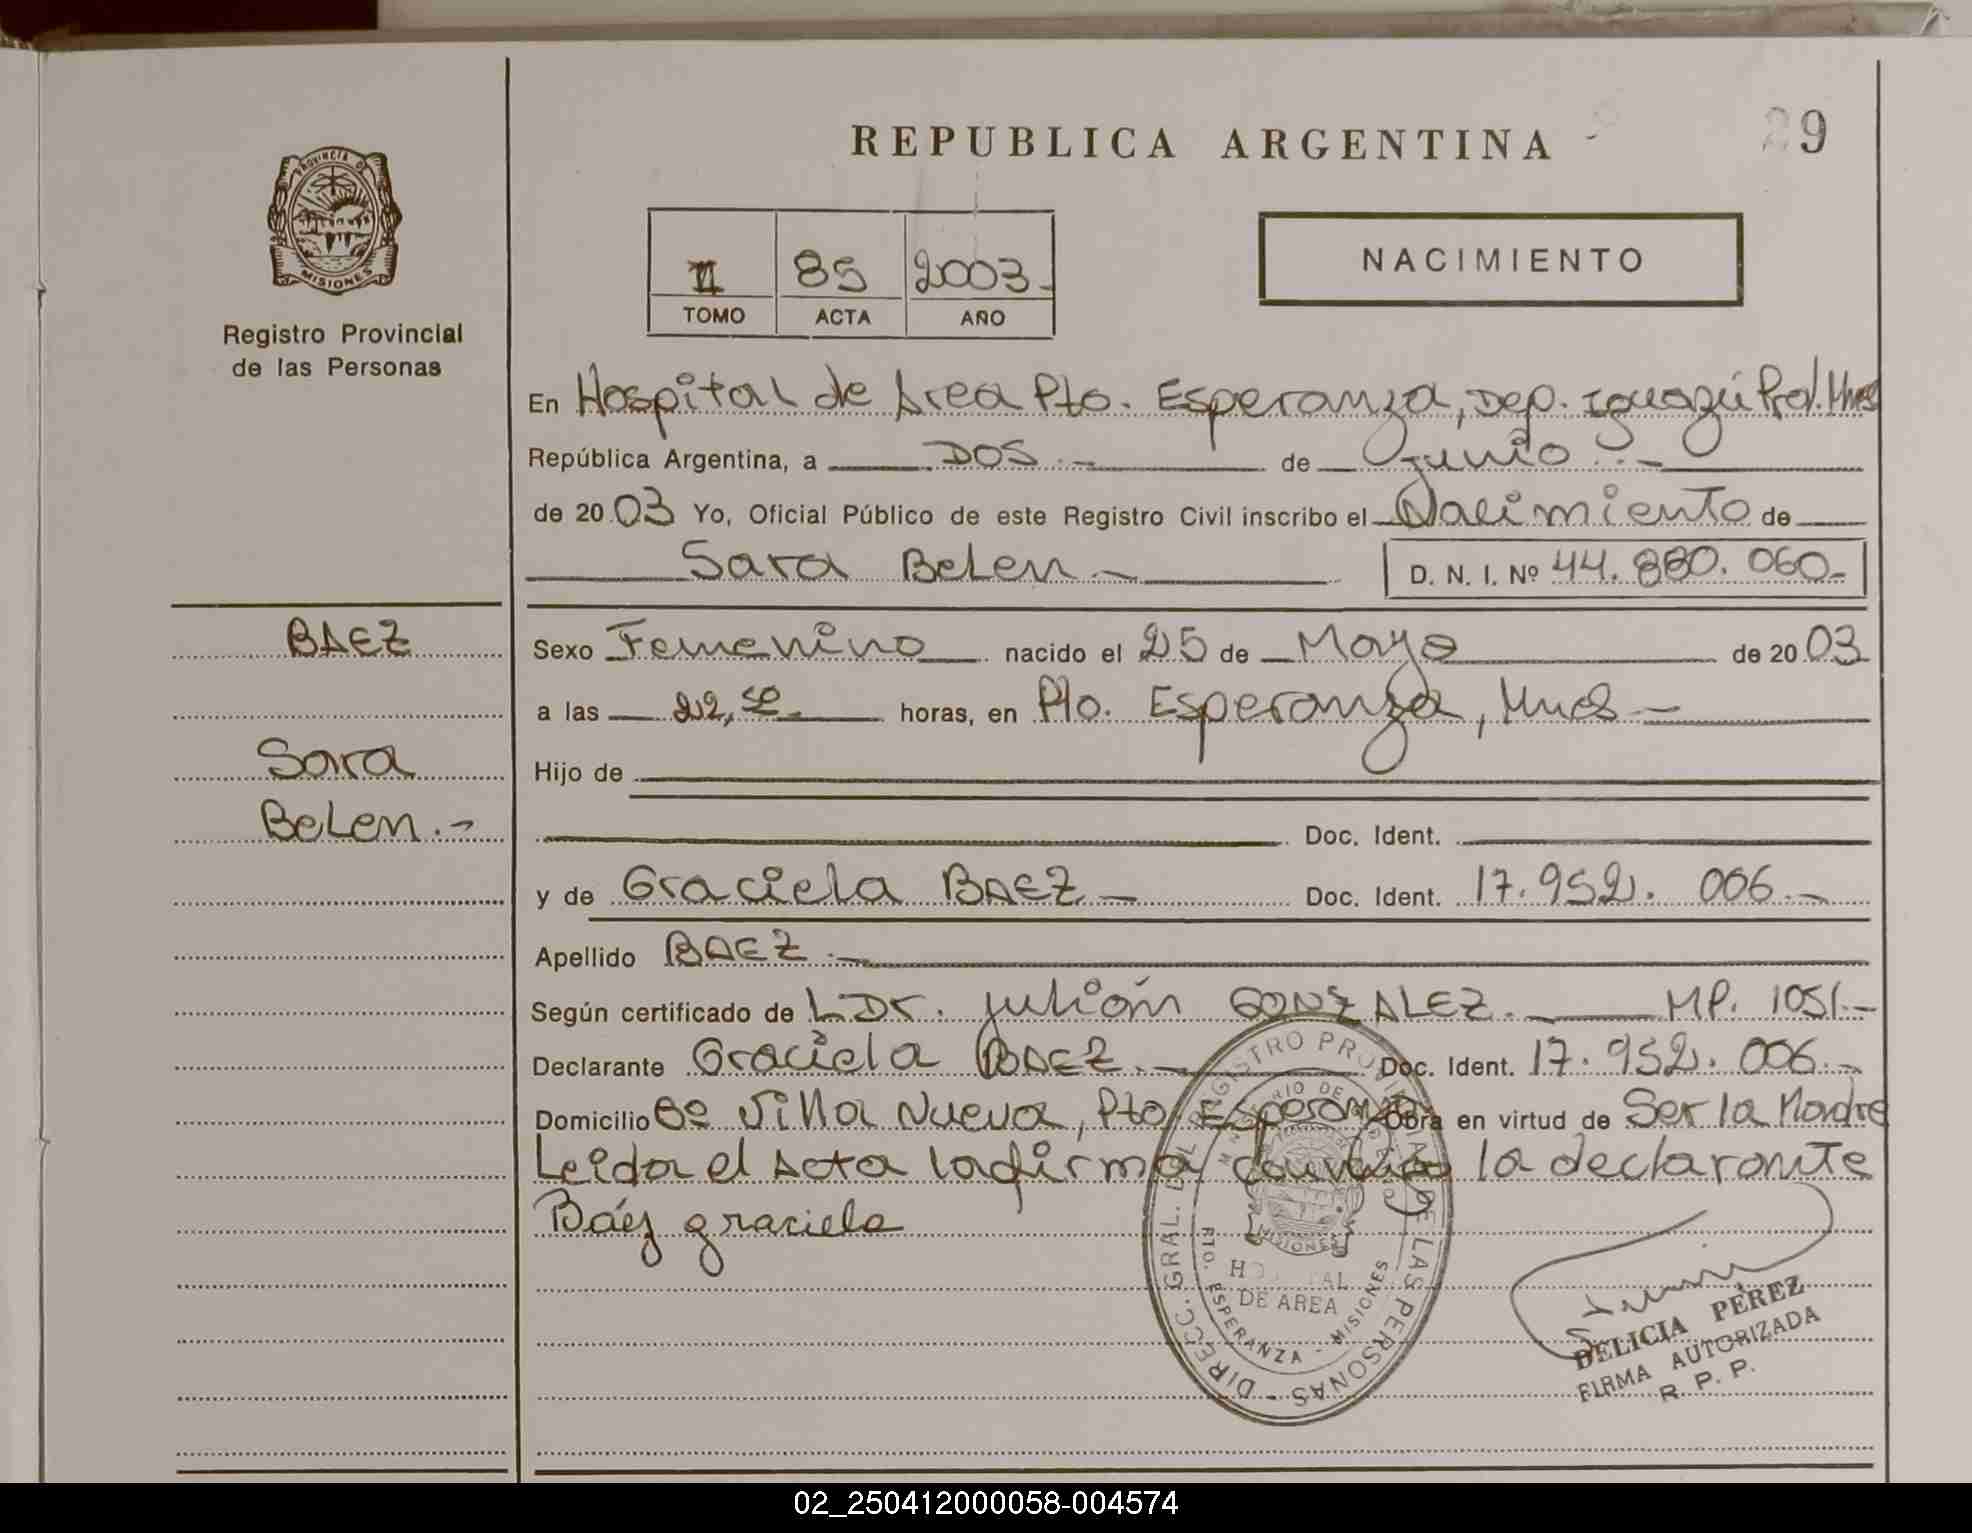 REPUBLICA ARGENTINA
29
PROVINCIA DE
MISIONES
Registro Provincial
de las Personas
II 85 2003-
TOMO ACTA AÑO
NACIMIENTO
En Hospital de Area Pto. Esperanza, Dep. Iguazú Prov. Mnes
República Argentina, a DOS.- de junio.-
de 2003 Yo, Oficial Público de este Registro Civil inscribo el Nacimiento de
Sara Belen.- D. N. I. Nº 44.880.060-
BAEZ
Sara
Belen.-
Sexo Femenino nacido el 25 de Mayo de 2003
a las 22,50 horas, en Pto. Esperanza, Mnes-
Hijo de
Doc. Ident.
y de Graciela BAEZ.- Doc. Ident. 17.952.006.-
Apellido BAEZ.-
Según certificado de L Dr. Julián GONZALEZ. MP. 1051.-
Declarante Graciela BAEZ.- Doc. Ident. 17.952.006.-
Domicilio Bº Villa Nueva, Pto. Esperanza Obra en virtud de Ser la Madre
Leida el Acta la firma conmigo la declarante
Báez graciela
DIRECC. GRAL. DEL REGISTRO PROVINCIAL DE LAS PERSONAS -
MISIONES
HOSPITAL
DE AREA
PTO. ESPERANZA - MISIONES
DELICIA PÉREZ
FIRMA AUTORIZADA
R. P. P.
02_250412000058-004574